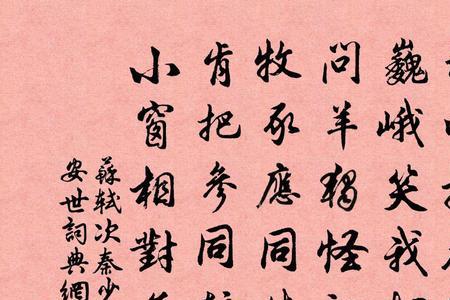 巍峨笑我
問羊獨怪
牧豕應同
肯把參同
小窗相對
蘇軾次秦少
安世詞典網